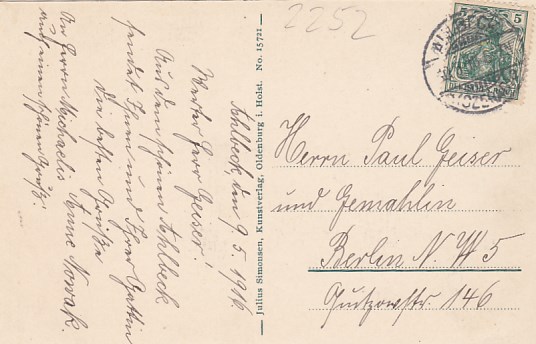 2252
Ahlbeck, den 9. 5. 1916
Werter Herr Geiser!
Aus dem schönen Ahlbeck
sendet Ihnen und Ihrer Gattin
die besten Grüße
Anna Nowak.
An Herrn Michaelis
auch einen schönen Gruß.
Julius Simonsen, Kunstverlag, Oldenburg i. Holst. No. 15721
5
Herrn Paul Geiser
und Gemahlin
Berlin N. W 5
Quitzowstr 146